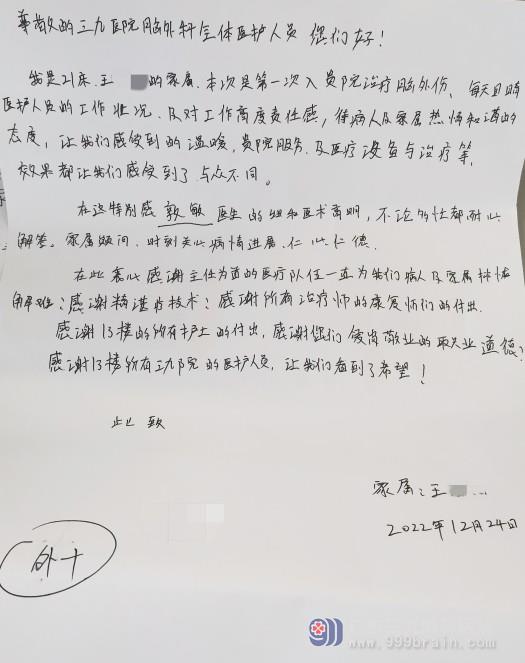 尊敬的三九医院脑外科全体医护人员 您们好!
我是21床.王 的家属.本次是第一次入贵院治疗脑外伤、每天目睹
医护人员的工作状况.及对工作高度责任感,待病人及家属热情和谐的
态度,让我们感受到的温暖.贵院服务.及医疗设备与治疗等,
效果都让我们感受到了与众不同。
在这特别感 敦敏 医生的 和医术高明,不论多忙都耐心
解答。家属疑问.时刻关心病情进展.仁心仁德.
在此衷心感谢主任为首的医疗队伍一直为我们病人及家属排忧
解难;感谢精湛的技术;感谢所有治疗师的康复师们的付出.
感谢13楼的所有护士的付出,感谢您们爱岗敬业的职业道德;
感谢13楼所有三九院的医护人员,让我们看到了希望!
此致
家属:王
2022年12月24日
外十
www.999brain.com